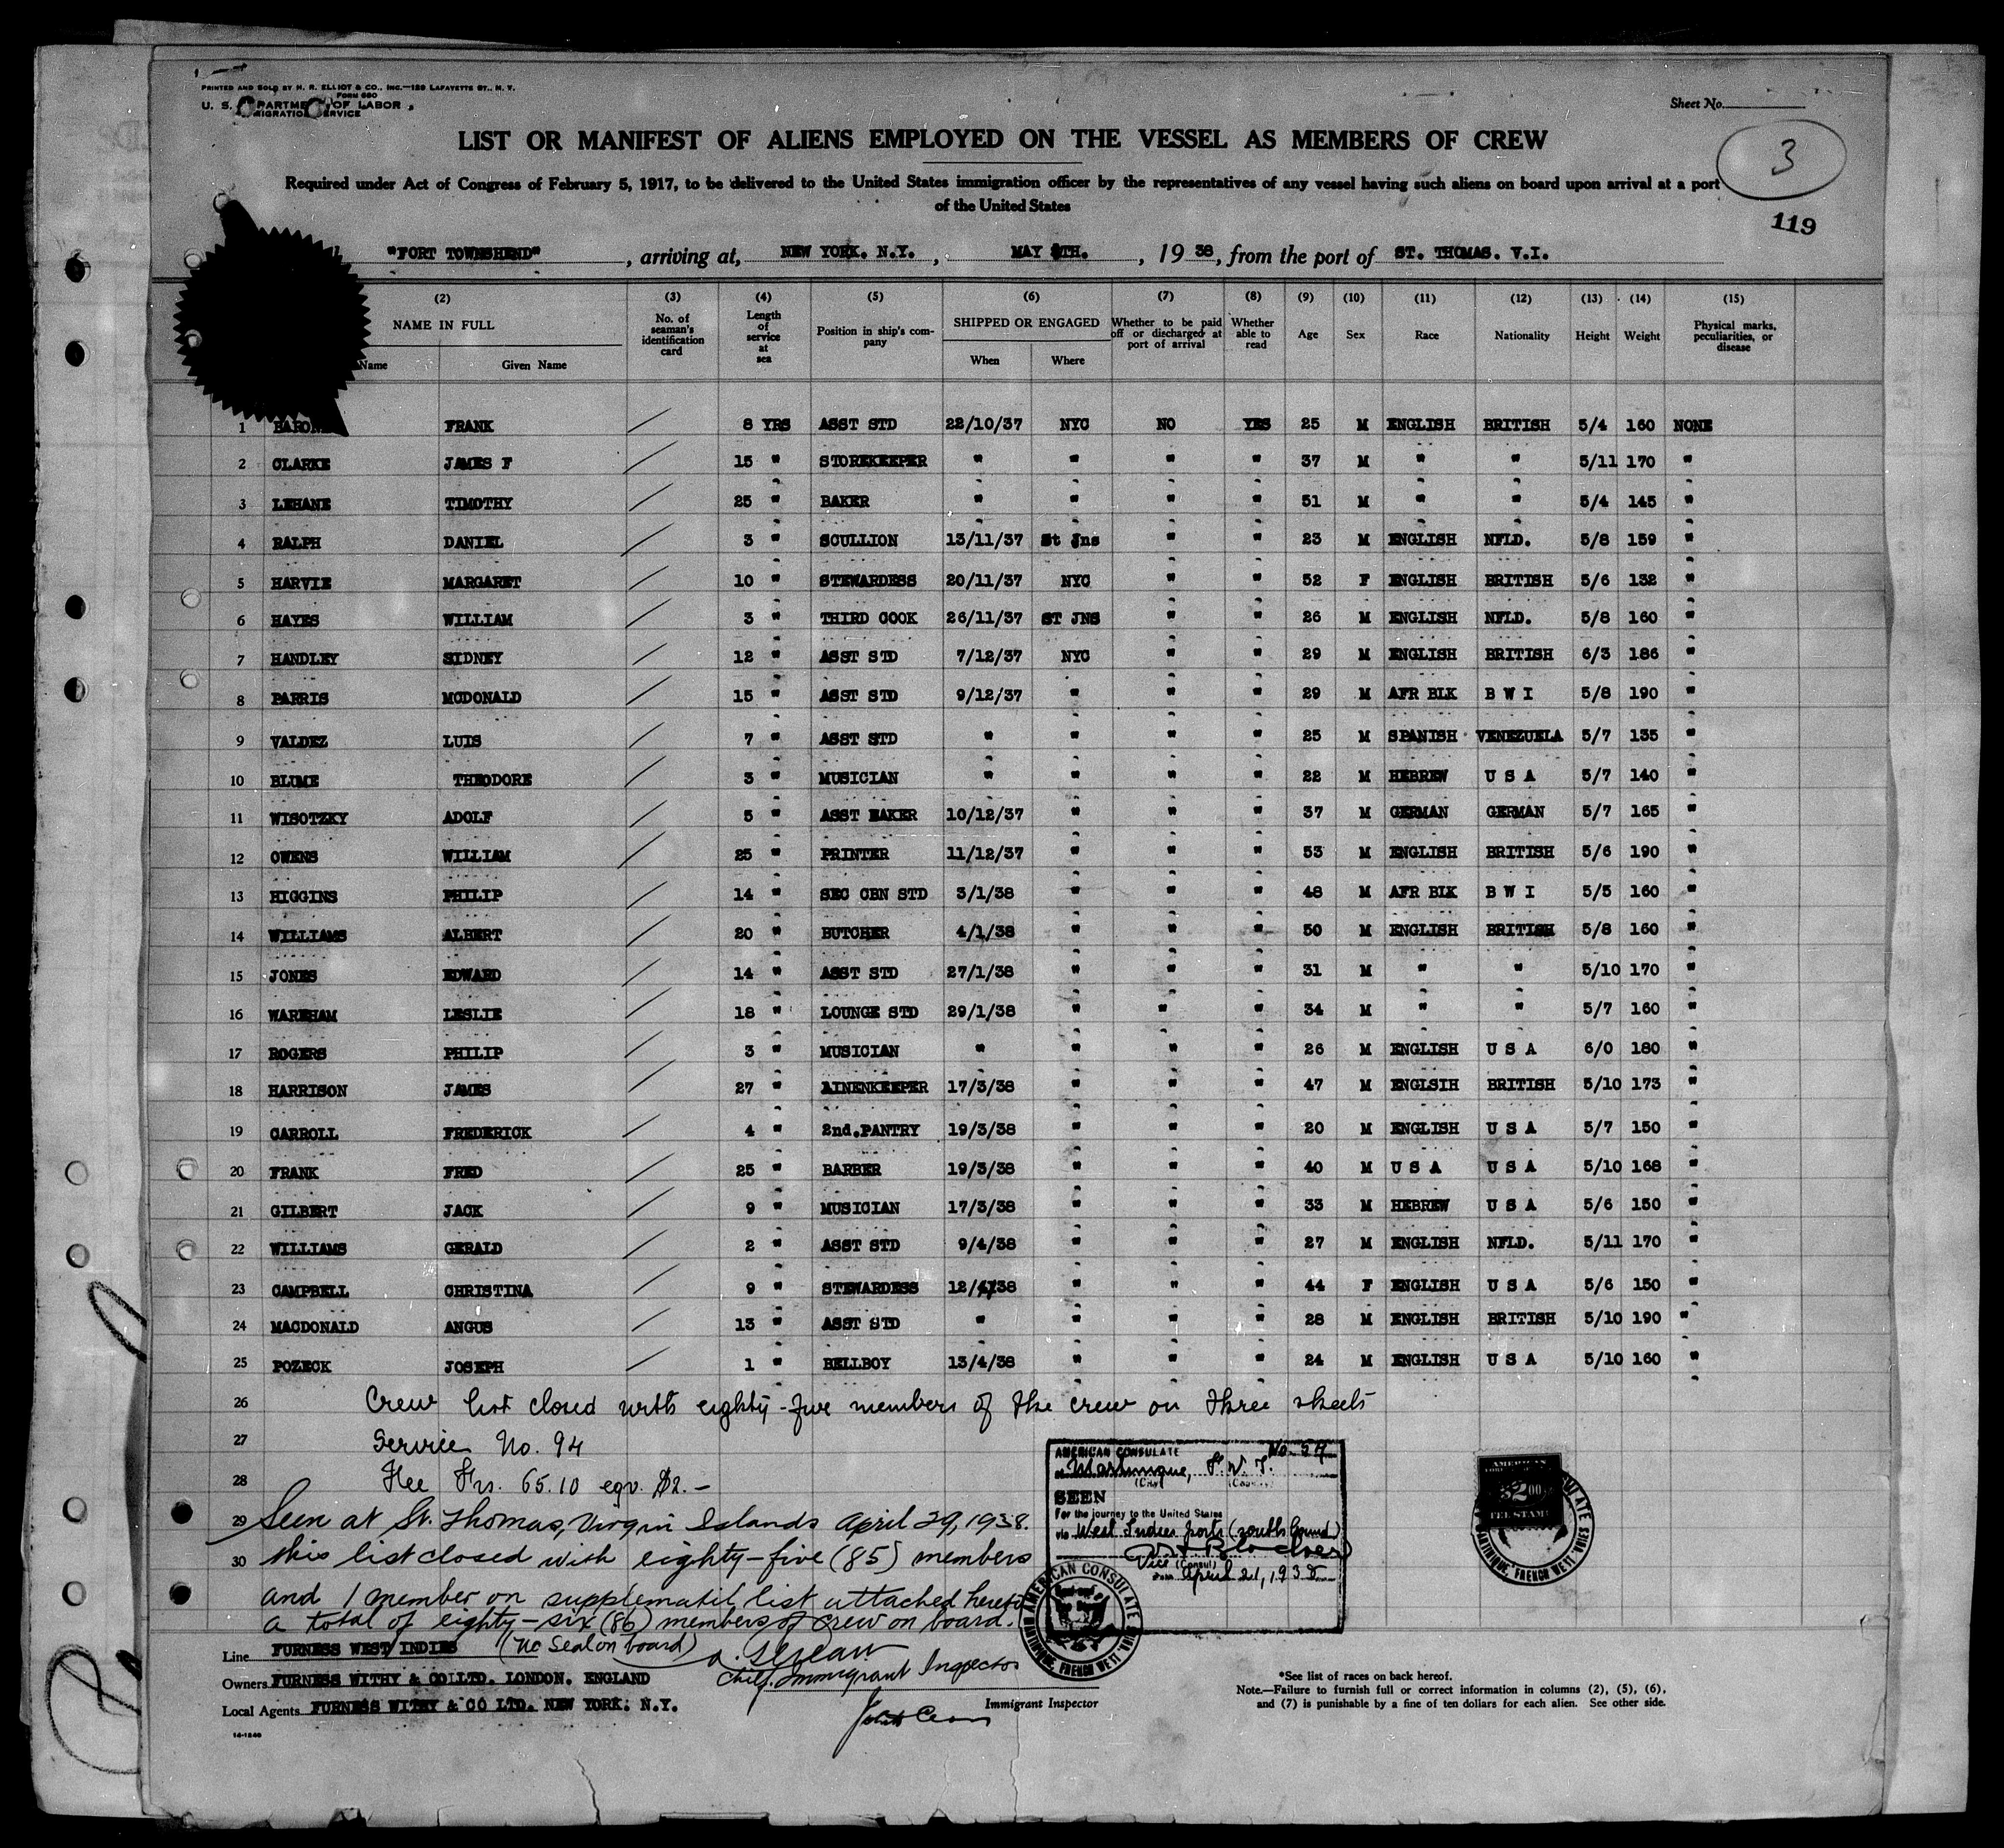 PRINTED AND SOLD BY H. R. ELLIOT & CO., INC.—129 LAFAYETTE ST., N. Y.
FORM 680
U. S. PARTMENT OF LABOR
MIGRATION SERVICE
Sheet No.
LIST OR MANIFEST OF ALIENS EMPLOYED ON THE VESSEL AS MEMBERS OF CREW
3
Required under Act of Congress of February 5, 1917, to be delivered to the United States immigration officer by the representatives of any vessel having such aliens on board upon arrival at a port
of the United States
119
"FORT TOWNSHEND", arriving at, NEW YORK. N.Y., MAY TH., 19 38, from the port of ST. THOMAS. V.I.
(2) (3) (4) (5) (6) (7) (8) (9) (10) (11) (12) (13) (14) (15)
NAME IN FULL No. of seaman's identification card Length of service at sea Position in ship's company SHIPPED OR ENGAGED Whether to be paid off or discharged at port of arrival Whether able to read Age Sex Race Nationality Height Weight Physical marks, peculiarities, or disease
Name Given Name When Where
1 FRANK / 8 YRS ASST STD 22/10/37 NYC NO YES 25 M ENGLISH BRITISH 5/4 160 NONE
2 CLARKE JAMES F / 15 " STOREKEEPER " " " " 37 M " " 5/11 170 "
3 LEHANE TIMOTHY / 25 " BAKER " " " " 51 M " " 5/4 145 "
4 RALPH DANIEL / 3 " SCULLION 13/11/37 St Jns " " 23 M ENGLISH NFLD. 5/8 159 "
5 HARVIE MARGARET / 10 " STEWARDESS 20/11/37 NYC " " 52 F ENGLISH BRITISH 5/6 132 "
6 HAYES WILLIAM / 3 " THIRD COOK 26/11/37 ST JNS " " 26 M ENGLISH NFLD. 5/8 160 "
7 HANDLEY SIDNEY / 12 " ASST STD 7/12/37 NYC " " 29 M ENGLISH BRITISH 6/3 186 "
8 PARRIS MCDONALD / 15 " ASST STD 9/12/37 " " " 29 M AFR BLK B W I 5/8 190 "
9 VALDEZ LUIS / 7 " ASST STD " " " " 25 M SPANISH VENEZUELA 5/7 135 "
10 BLUME THEODORE / 3 " MUSICIAN " " " " 22 M HEBREW U S A 5/7 140 "
11 WISOTZKY ADOLF / 5 " ASST BAKER 10/12/37 " " " 37 M GERMAN GERMAN 5/7 165 "
12 OWENS WILLIAM / 25 " PRINTER 11/12/37 " " " 53 M ENGLISH BRITISH 5/6 190 "
13 HIGGINS PHILIP / 14 " SEC CBN STD 3/1/38 " " " 48 M AFR BLK B W I 5/5 160 "
14 WILLIAMS ALBERT / 20 " BUTCHER 4/1/38 " " " 50 M ENGLISH BRITISH 5/8 160 "
15 JONES EDWARD / 14 " ASST STD 27/1/38 " " " 31 M " " 5/10 170 "
16 WAREHAM LESLIE / 18 " LOUNGE STD 29/1/38 " " " 34 M " " 5/7 160 "
17 ROGERS PHILIP / 3 " MUSICIAN " " " " 26 M ENGLISH U S A 6/0 180 "
18 HARRISON JAMES / 27 " LINENKEEPER 17/3/38 " " " 47 M ENGLSIH BRITISH 5/10 173 "
19 CARROLL FREDERICK / 4 " 2nd.PANTRY 19/3/38 " " " 20 M ENGLISH U S A 5/7 150 "
20 FRANK FRED / 25 " BARBER 19/3/38 " " " 40 M U S A U S A 5/10 168 "
21 GILBERT JACK / 9 " MUSICIAN 17/3/38 " " " 33 M HEBREW U S A 5/6 150 "
22 WILLIAMS GERALD / 2 " ASST STD 9/4/38 " " " 27 M ENGLISH NFLD. 5/11 170 "
23 CAMPBELL CHRISTINA / 9 " STEWARDESS 12/4/38 " " " 44 F ENGLISH U S A 5/6 150 "
24 MACDONALD ANGUS / 13 " ASST STD " " " " 28 M ENGLISH BRITISH 5/10 190 "
25 POZECK JOSEPH / 1 " BELLBOY 13/4/38 " " " 24 M ENGLISH U S A 5/10 160 "
26 Crew list closed with eighty-five members of the crew on three sheets
27 Service No. 94
28 Fee Frs. 65.10 eqv. $2.—
29 Seen at St. Thomas, Virgin Islands April 29, 1938.
30 this list closed with eighty-five (85) members
and 1 member on supplematil list attached hereto
a total of eighty-six (86) members of crew on board.
(No Seal on board)
AMERICAN CONSULATE No. 59
at Martinique, F. W. I.
(City) (Country)
SEEN
For the journey to the United States
via West Indies ports (south bound)
Vice (Consul)
Date April 21, 1938
AMERICAN CONSULATE MARTINIQUE, FRENCH WEST INDIES
AMERICAN
$2.00
FEE STAMP
MARTINIQUE, FRENCH WEST INDIES
Line FURNESS WEST INDIES
Owners FURNESS WITHY & CO LTD. LONDON. ENGLAND
Local Agents FURNESS WITHY & CO LTD. NEW YORK. N.Y.
Chief Immigrant Inspector
Immigrant Inspector
*See list of races on back hereof.
Note.—Failure to furnish full or correct information in columns (2), (5), (6),
and (7) is punishable by a fine of ten dollars for each alien. See other side.
14-1240